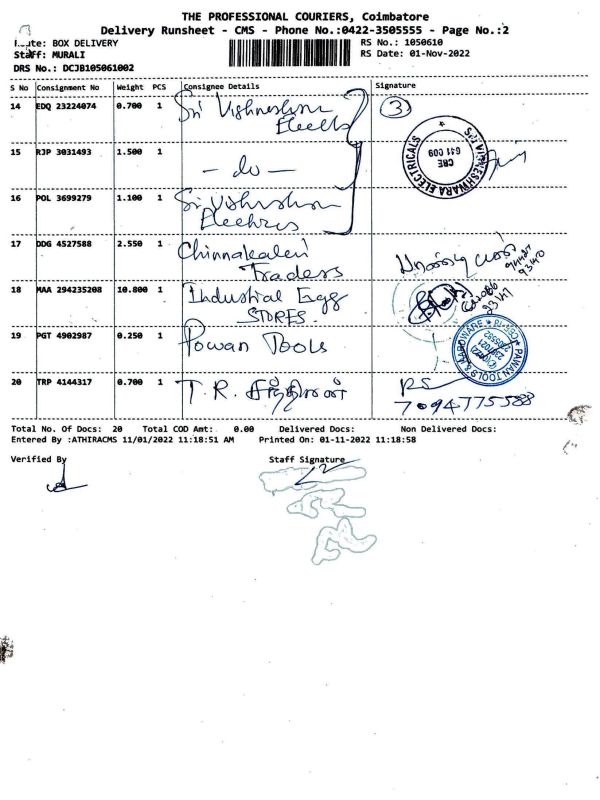 THE PROFESSIONAL COURIERS, Coimbatore
Delivery Runsheet - CMS - Phone No.:0422-3505555 - Page No.:2
BOX DELIVERY
RS No.: 1050610
Staff: MURALI
RS Date: 01-Nov-2022
DRS No.: DCJB105061002
S No Consignment No Weight PCS Consignee Details Signature
14 EDQ 23224074 0.700 1 Sri 3
15 RJP 3031493 1.500 1 - do -
SRI VIGNESHWARA ELECTRICALS
CBE
641 009
16 POL 3699279 1.100 1 Sri
17 DDG 4527588 2.550 1 Traders
18 MAA 294235208 10.800 1 Industrial Egg
STORES
19 PGT 4902987 0.250 1 Powan Tools
PAWAN TOOLS & HARDWARE
20 TRP 4144317 0.700 1 T. R. RS
7094775588
Total No. Of Docs: 20 Total COD Amt: 0.00 Delivered Docs: Non Delivered Docs:
Entered By :ATHIRACMS 11/01/2022 11:18:51 AM Printed On: 01-11-2022 11:18:58
Verified By Staff Signature